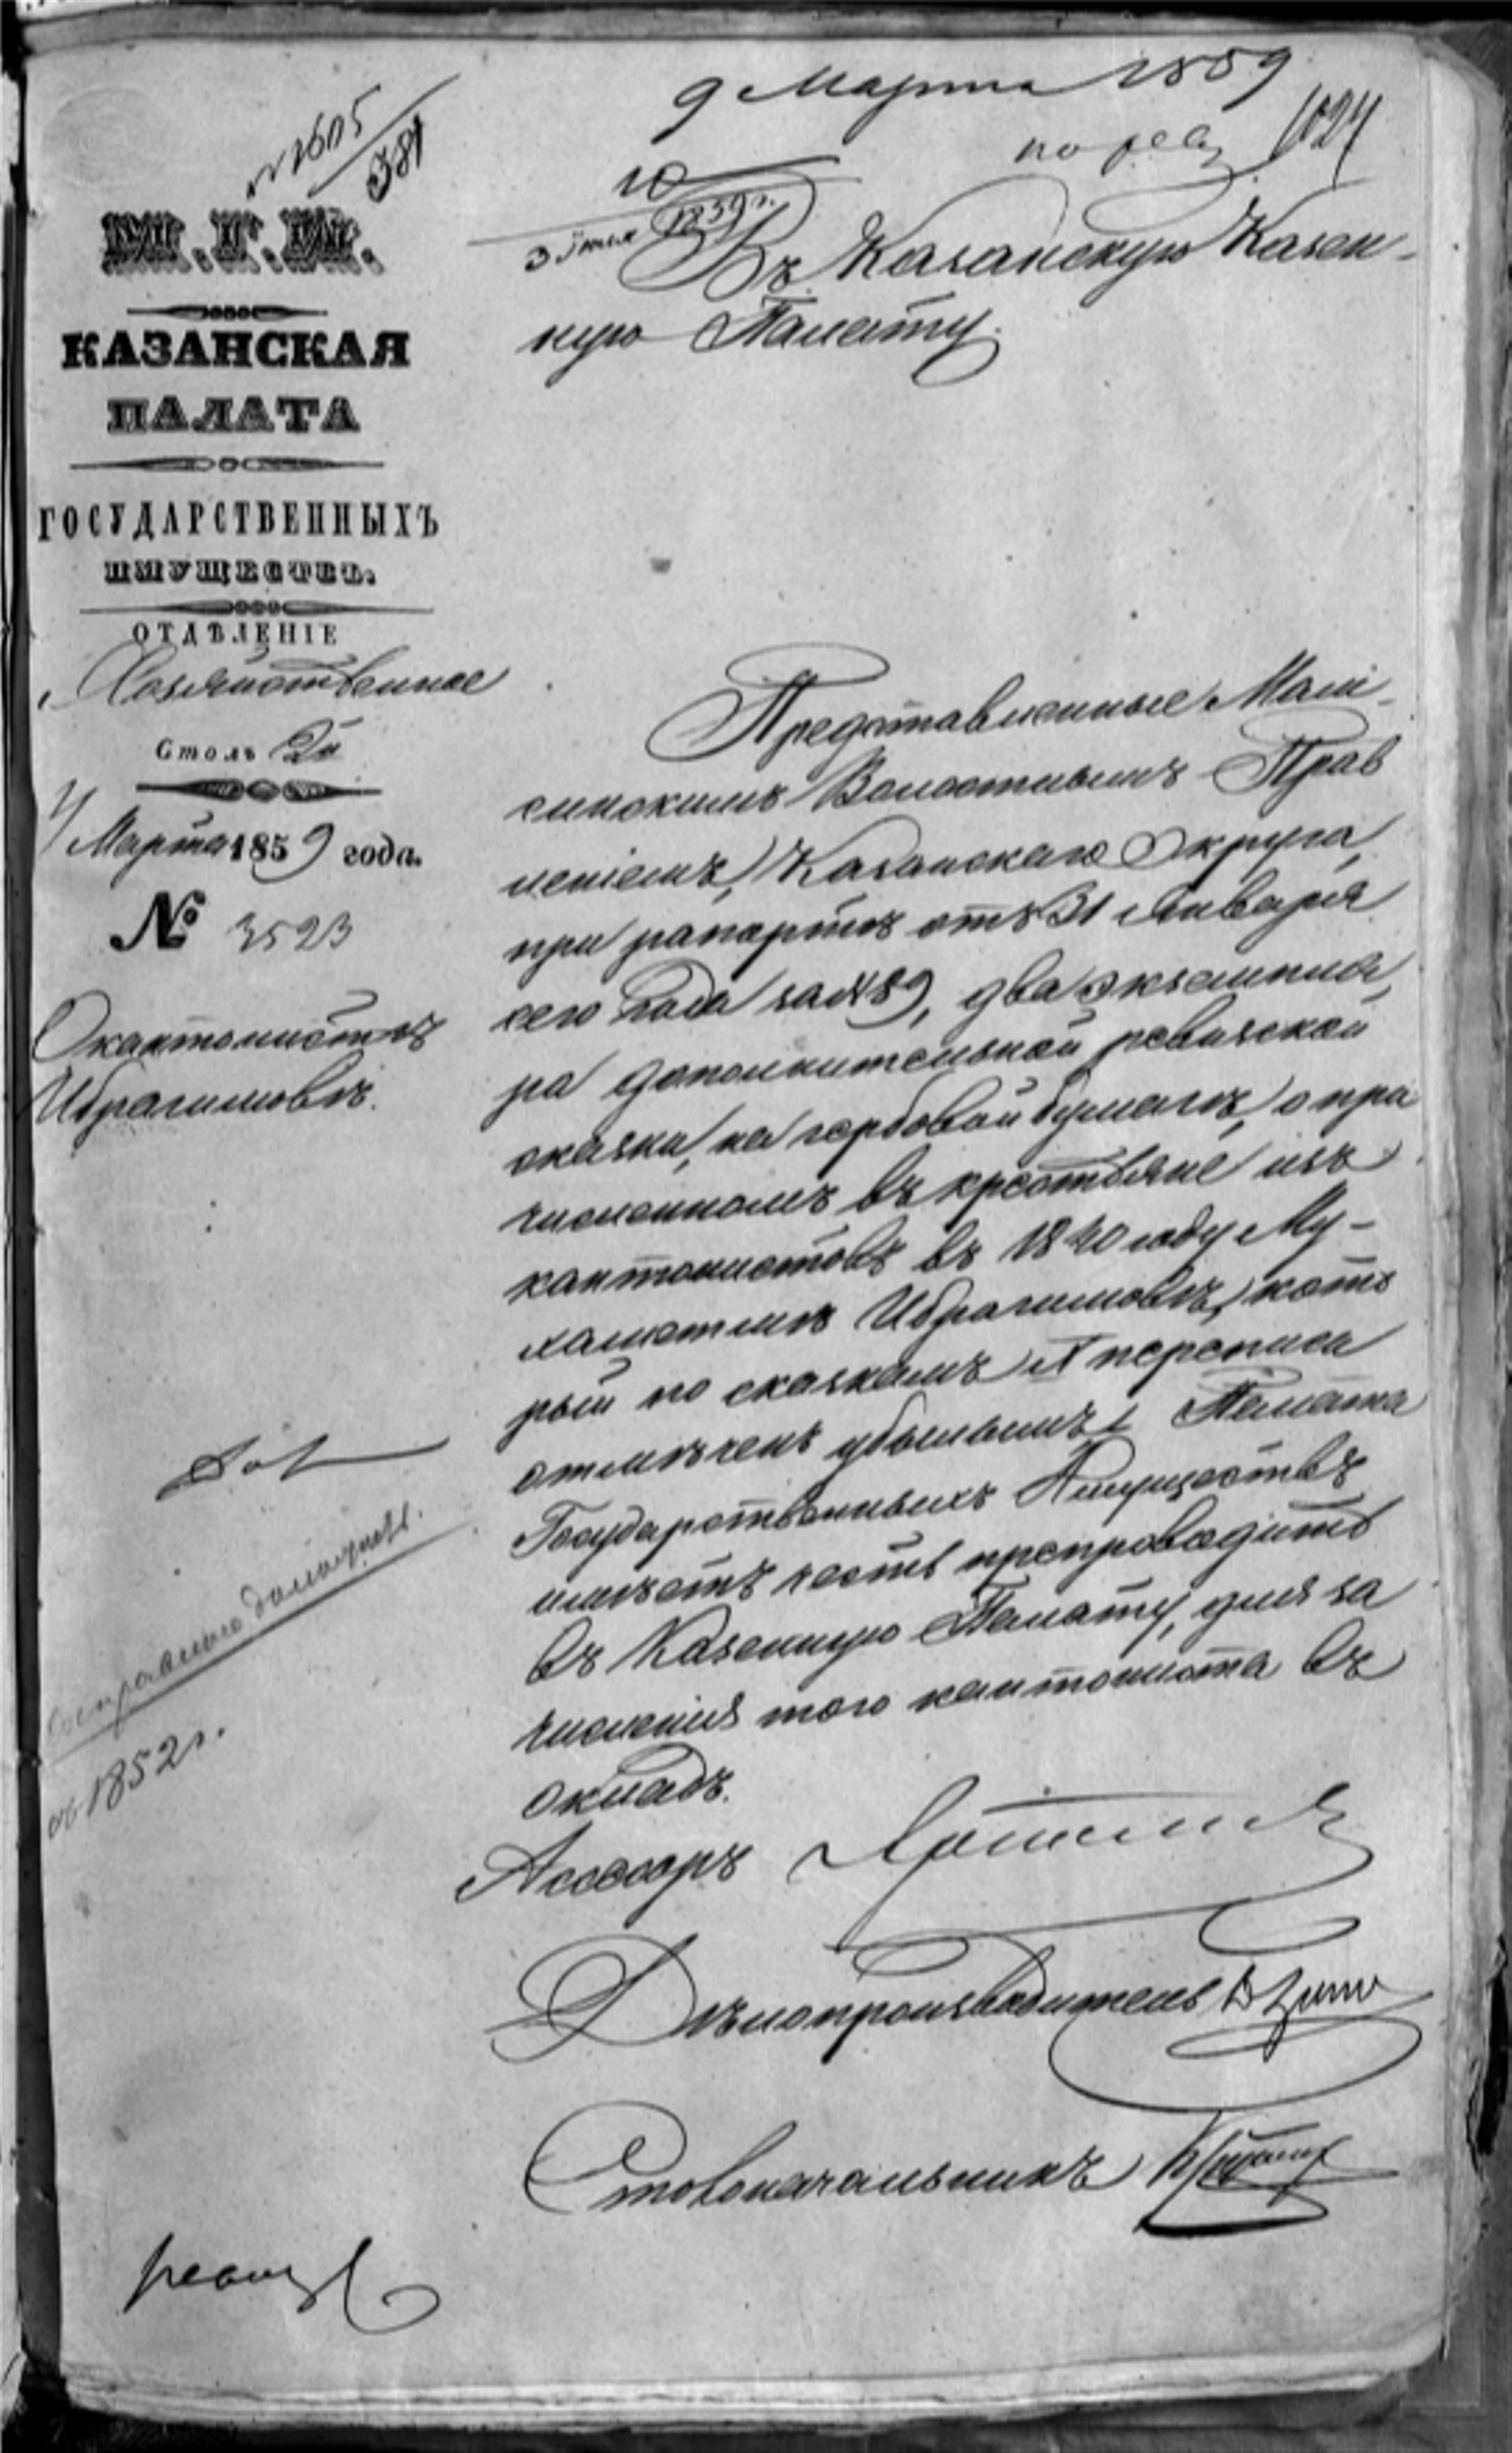 9 Марта 1859
№ 1605
381
по рев
1024
М.Г.И.
КАЗАНСКАЯ
ПАЛАТА
ГОСУДАРСТВЕННЫХЪ
ИМУЩЕСТВЪ.
ОТДѢЛЕНІЕ
Хозяйственное
Столъ 2й
Марта 1859 года.
№ 3523
О кантонистѣ
Ибрагимовѣ.
10
3 1859 г.
Въ Казанскую Казен-
ную Палату.
Представленные Маш-
синскимъ Волостнымъ Прав
леніемъ, Казанскаго Округа,
при рапортѣ отъ 31 Января
сего года за № 89, два экземпля
ра дополнительной ревизской
сказки, на гербовой бумагѣ, о при
численномъ въ крестьяне изъ
кантонистовъ въ 1840 году Му-
хаметшѣ Ибрагимовѣ, кото
рый по сказкамъ X переписи
отмѣченъ убылымъ, Палата
Государственныхъ Имуществъ
имѣетъ честь препроводить
въ Казенную Палату, для за
численія того кантониста въ
окладъ.
Ассесоръ
Дѣлопроизводитель
Столоначальникъ
1852 г.